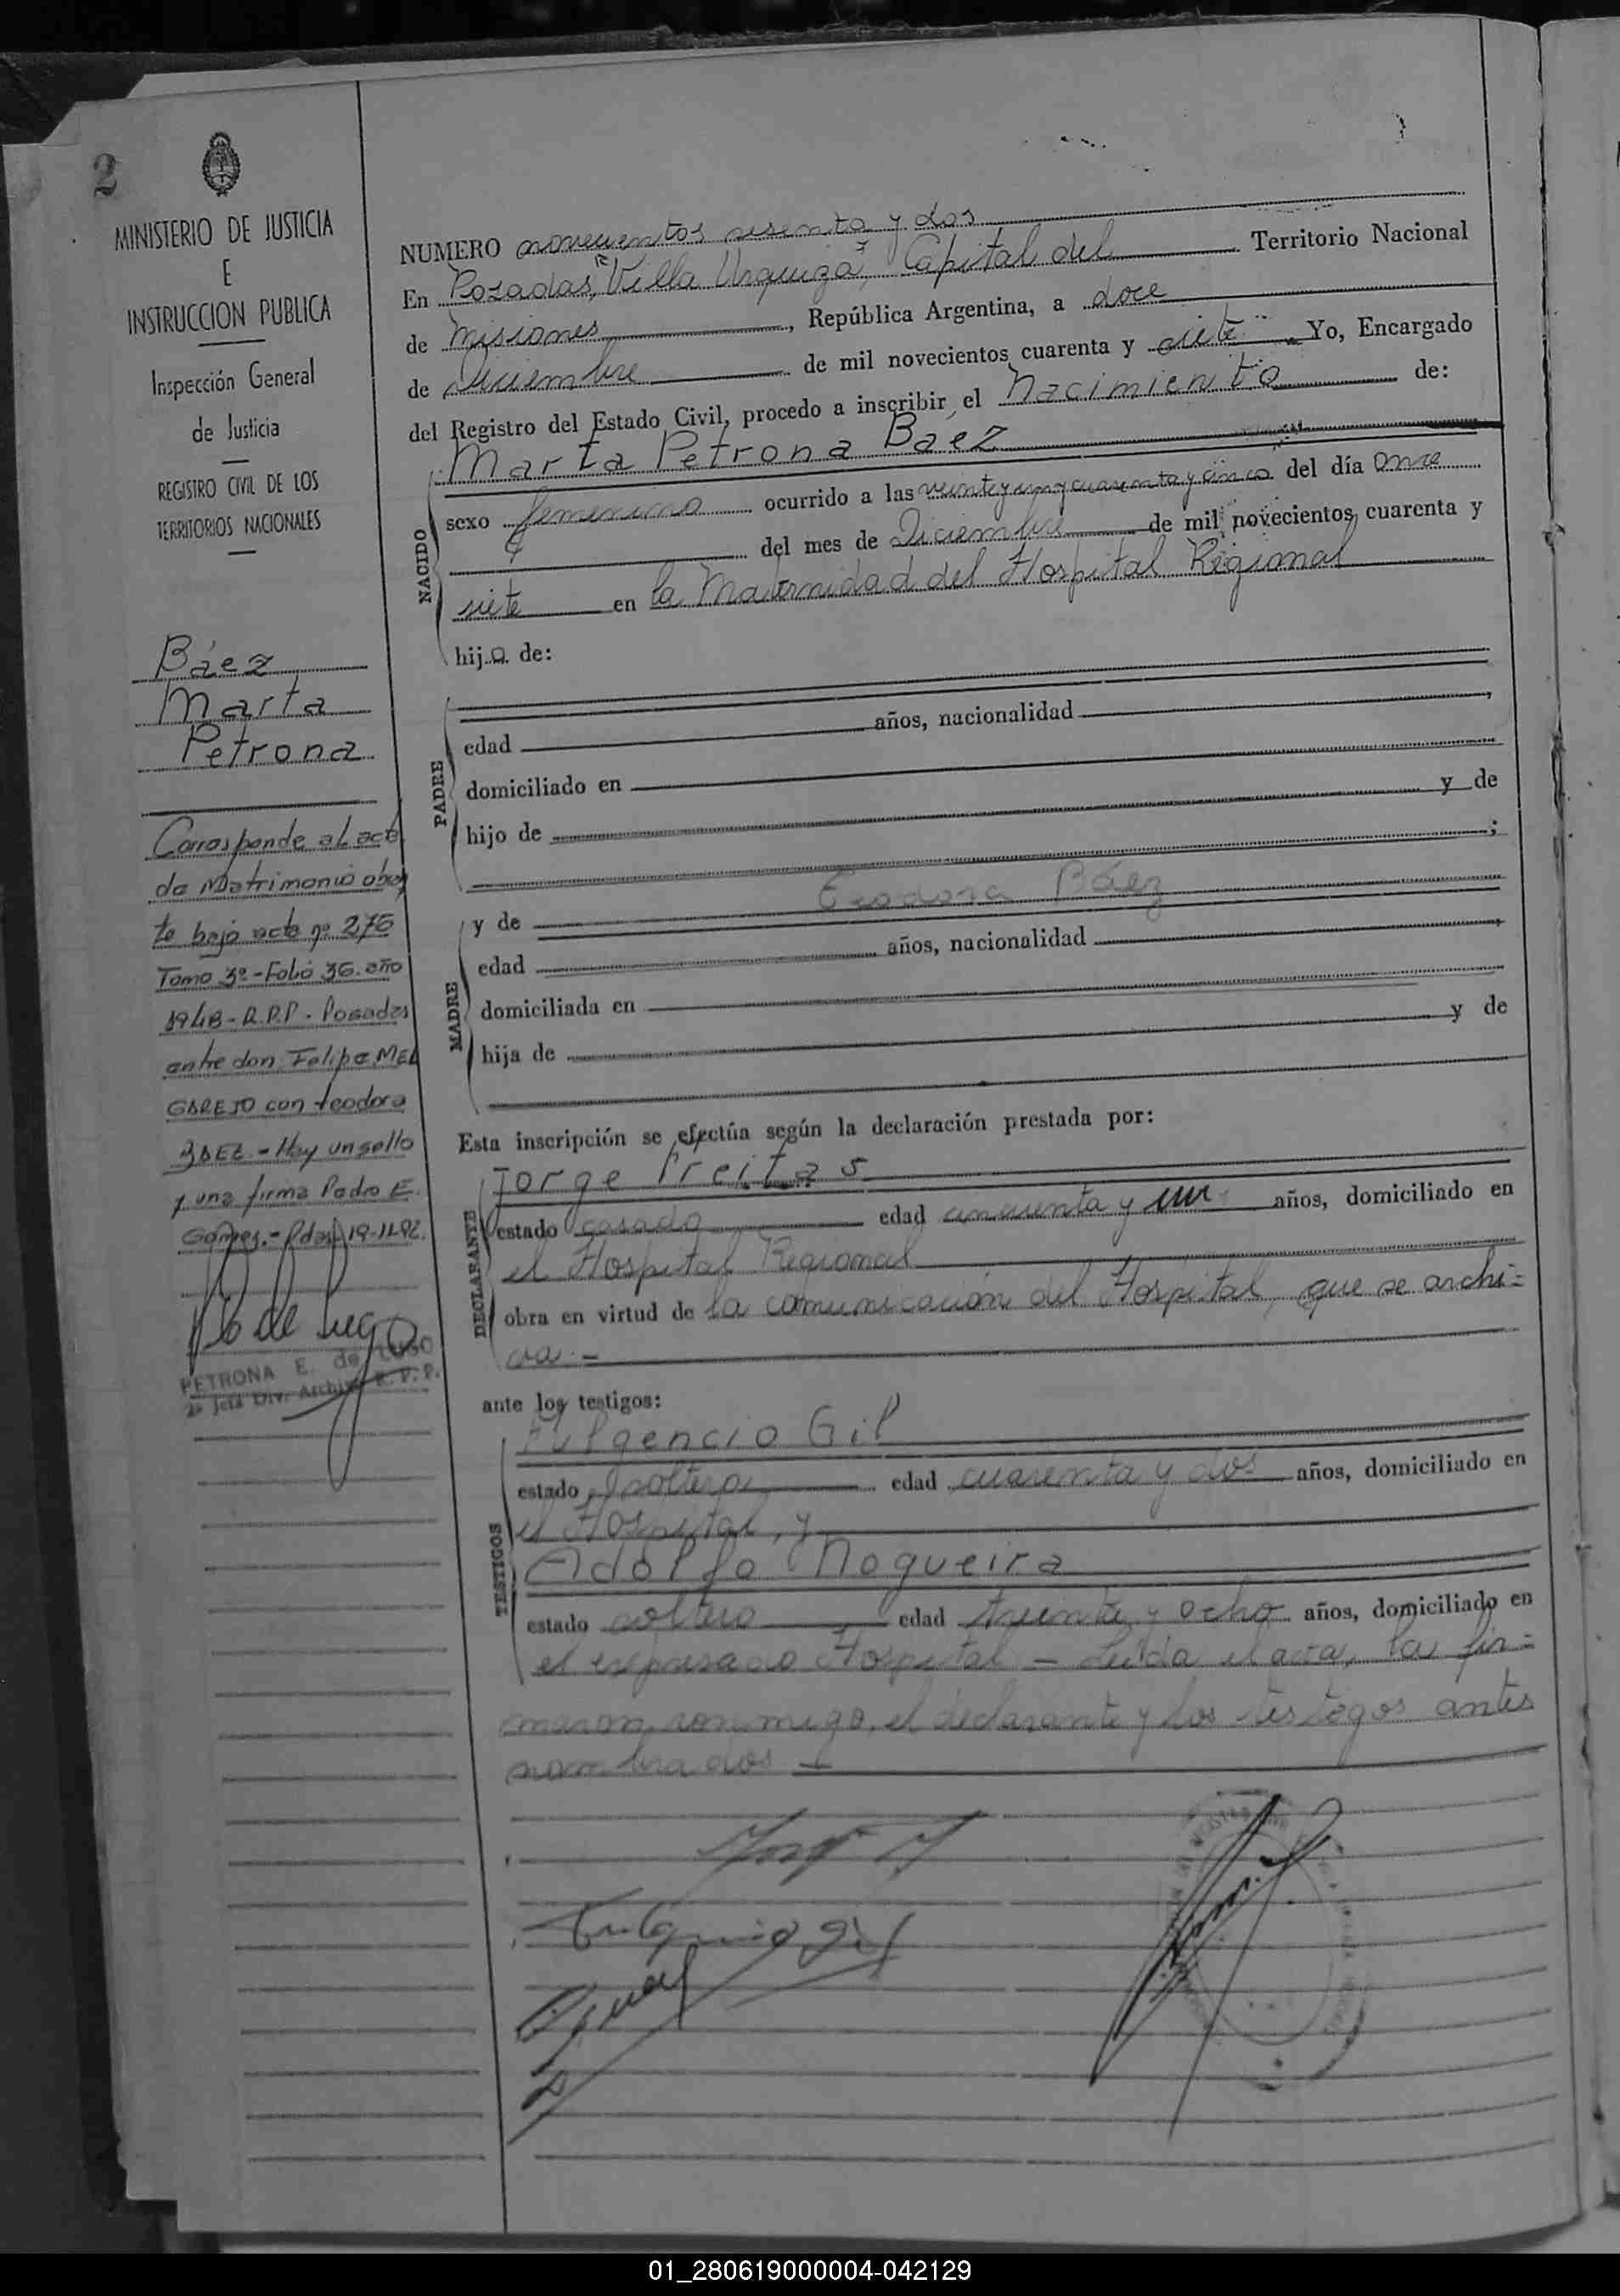 2
MINISTERIO DE JUSTICIA
E
INSTRUCCION PUBLICA
Inspección General
de Justicia
REGISTRO CIVIL DE LOS
TERRITORIOS NACIONALES
Báez
Marta
Petrona
Corresponde al acta
de Matrimonio obran
te bajo acta nº 276
Tomo 3º - Folio 36. año
1948 - R.P.P. - Posadas
entre don Felipe MEL
GAREJO con teodora
BAEZ - Hay un sello
y una firma Pedro E.
Gómez. - Pdas, 19-11-92.
PETRONA E. de LUGO
Jefa Div. Archivo R. P. P.
NUMERO novecientos sesenta y dos
En Posadas, "Villa Urquiza", Capital del Territorio Nacional
de Misiones, República Argentina, a doce
de Diciembre de mil novecientos cuarenta y siete Yo, Encargado
del Registro del Estado Civil, procedo a inscribir el Nacimiento de:
Marta Petrona Báez
NACIDO
sexo femenino ocurrido a las veinte y una y cuarenta y cinco del día once
del mes de Diciembre de mil novecientos cuarenta y
siete en la Maternidad del Hospital Regional
hija de:
PADRE
edad años, nacionalidad ,
domiciliado en
hijo de y de
;
MADRE
y de Teodora Báez
edad años, nacionalidad ,
domiciliada en
hija de y de
Esta inscripción se efectúa según la declaración prestada por:
DECLARANTE
Jorge Freitas
estado casado edad cincuenta y un años, domiciliado en
el Hospital Regional
obra en virtud de la comunicación del Hospital, que se archi=
va.-
ante los testigos:
TESTIGOS
Fulgencio Gil
estado soltero edad cuarenta y dos años, domiciliado en
el Hospital, y
Adolfo Nogueira
estado soltero edad treinta y ocho años, domiciliado en
el expresado Hospital - Leída el acta, la fir=
maron conmigo, el declarante y los testigos antes
nombrados -
Fulgencio Gil
01_280619000004-042129